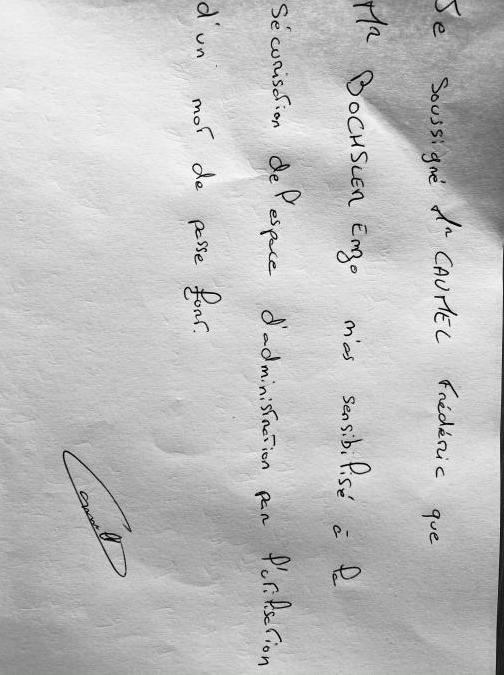 Je soussigné Mr CAUMEL Frédéric que
Mr BOCHSLER Enzo m'as sensibilisé à la
sécurisation de l'espace d'administration par l'utilisation
d'un mot de passe fort.